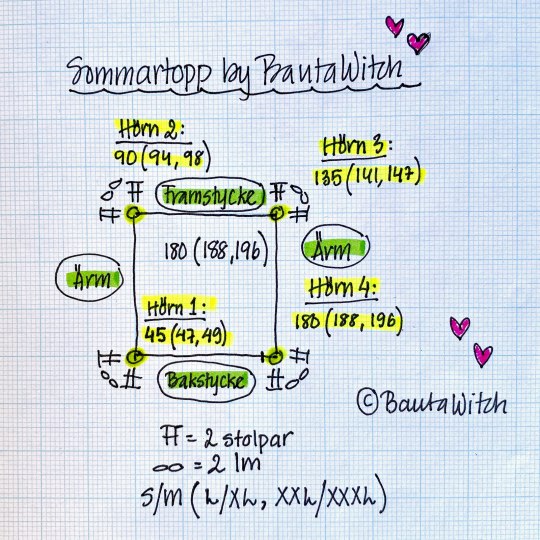 Sommartopp by BautaWitch
Hörn 2:
90 (94, 98)
Hörn 3:
135 (141, 147)
Framstycke
180 (188, 196)
Ärm
Ärm
Hörn 1:
45 (47, 49)
Hörn 4:
180 (188, 196)
Bakstycke
© BautaWitch
= 2 stolpar
= 2 lm
S/M (L/XL, XXL/XXXL)